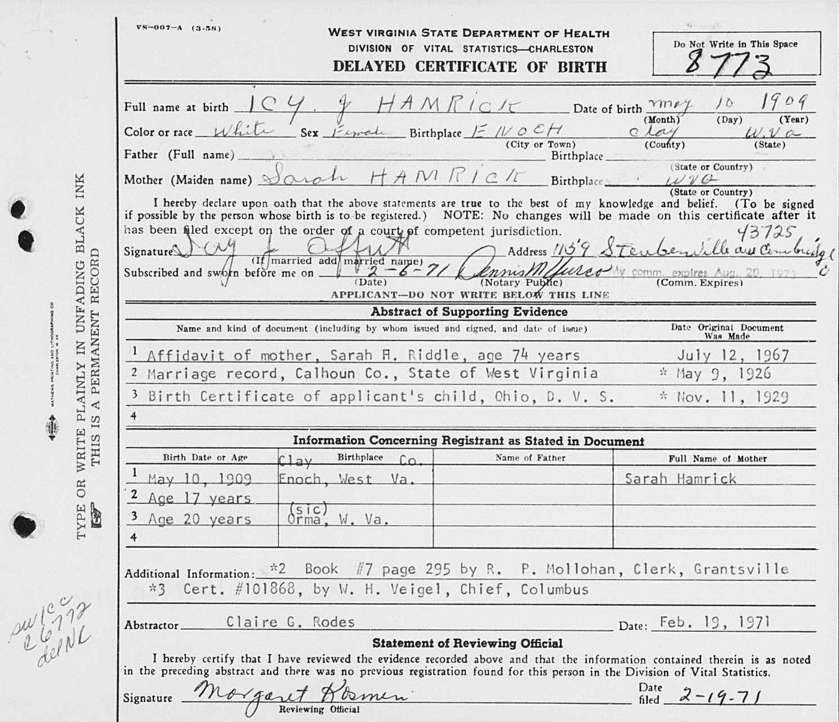 VS-007-A (3-58)
WEST VIRGINIA STATE DEPARTMENT OF HEALTH
DIVISION OF VITAL STATISTICS—CHARLESTON
DELAYED CERTIFICATE OF BIRTH
Do Not Write in This Space
8773
Full name at birth ICY. J HAMRICK Date of birth May 10 1909
(Month) (Day) (Year)
Color or race White Sex Female Birthplace ENOCH Clay W.Va
(City or Town) (County) (State)
Father (Full name) Birthplace
(State or Country)
Mother (Maiden name) Sarah HAMRICK Birthplace WVA
(State or Country)
I hereby declare upon oath that the above statements are true to the best of my knowledge and belief. (To be signed
if possible by the person whose birth is to be registered.) NOTE: No changes will be made on this certificate after it
has been filed except on the order of a court of competent jurisdiction. 43725
Signature J Address 1159 Steubenville ave Cambridge
(If married add married name)
Subscribed and sworn before me on 2-6-71 Dennis M My comm. expires Aug. 20, 
(Date) (Notary Public) (Comm. Expires)
APPLICANT—DO NOT WRITE BELOW THIS LINE
Abstract of Supporting Evidence
Name and kind of document (including by whom issued and signed, and date of issue) Date Original Document
Was Made
1 Affidavit of mother, Sarah A. Riddle, age 74 years July 12, 1967
2 Marriage record, Calhoun Co., State of West Virginia * May 9, 1926
3 Birth Certificate of applicant's child, Ohio, D. V. S. * Nov. 11, 1929
4
Information Concerning Registrant as Stated in Document
Birth Date or Age Clay Birthplace Co. Name of Father Full Name of Mother
1 May 10, 1909 Enoch, West Va. Sarah Hamrick
2 Age 17 years
(sic)
3 Age 20 years Orma, W. Va.
4
Additional Information: *2 Book #7 page 295 by R. P. Mollohan, Clerk, Grantsville
*3 Cert. #101868, by W. H. Veigel, Chief, Columbus
Abstractor Claire G. Rodes Date: Feb. 19, 1971
Statement of Reviewing Official
I hereby certify that I have reviewed the evidence recorded above and that the information contained therein is as noted
in the preceding abstract and there was no previous registration found for this person in the Division of Vital Statistics.
Signature Margaret Date filed 2-19-71
Reviewing Official
TYPE OR WRITE PLAINLY IN UNFADING BLACK INK
THIS IS A PERMANENT RECORD